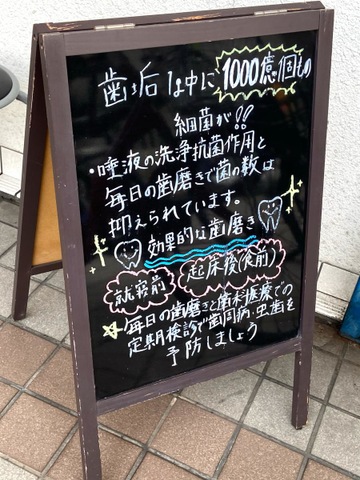 歯垢1g中に1000億個もの
細菌が!!
・唾液の洗浄抗菌作用と
毎日の歯磨きで菌の数は
抑えられています。
効果的な歯磨き
就寝前
起床後(食前)
毎日の歯磨きと歯科医療での
定期検診で歯周病・虫歯を
予防しましょう